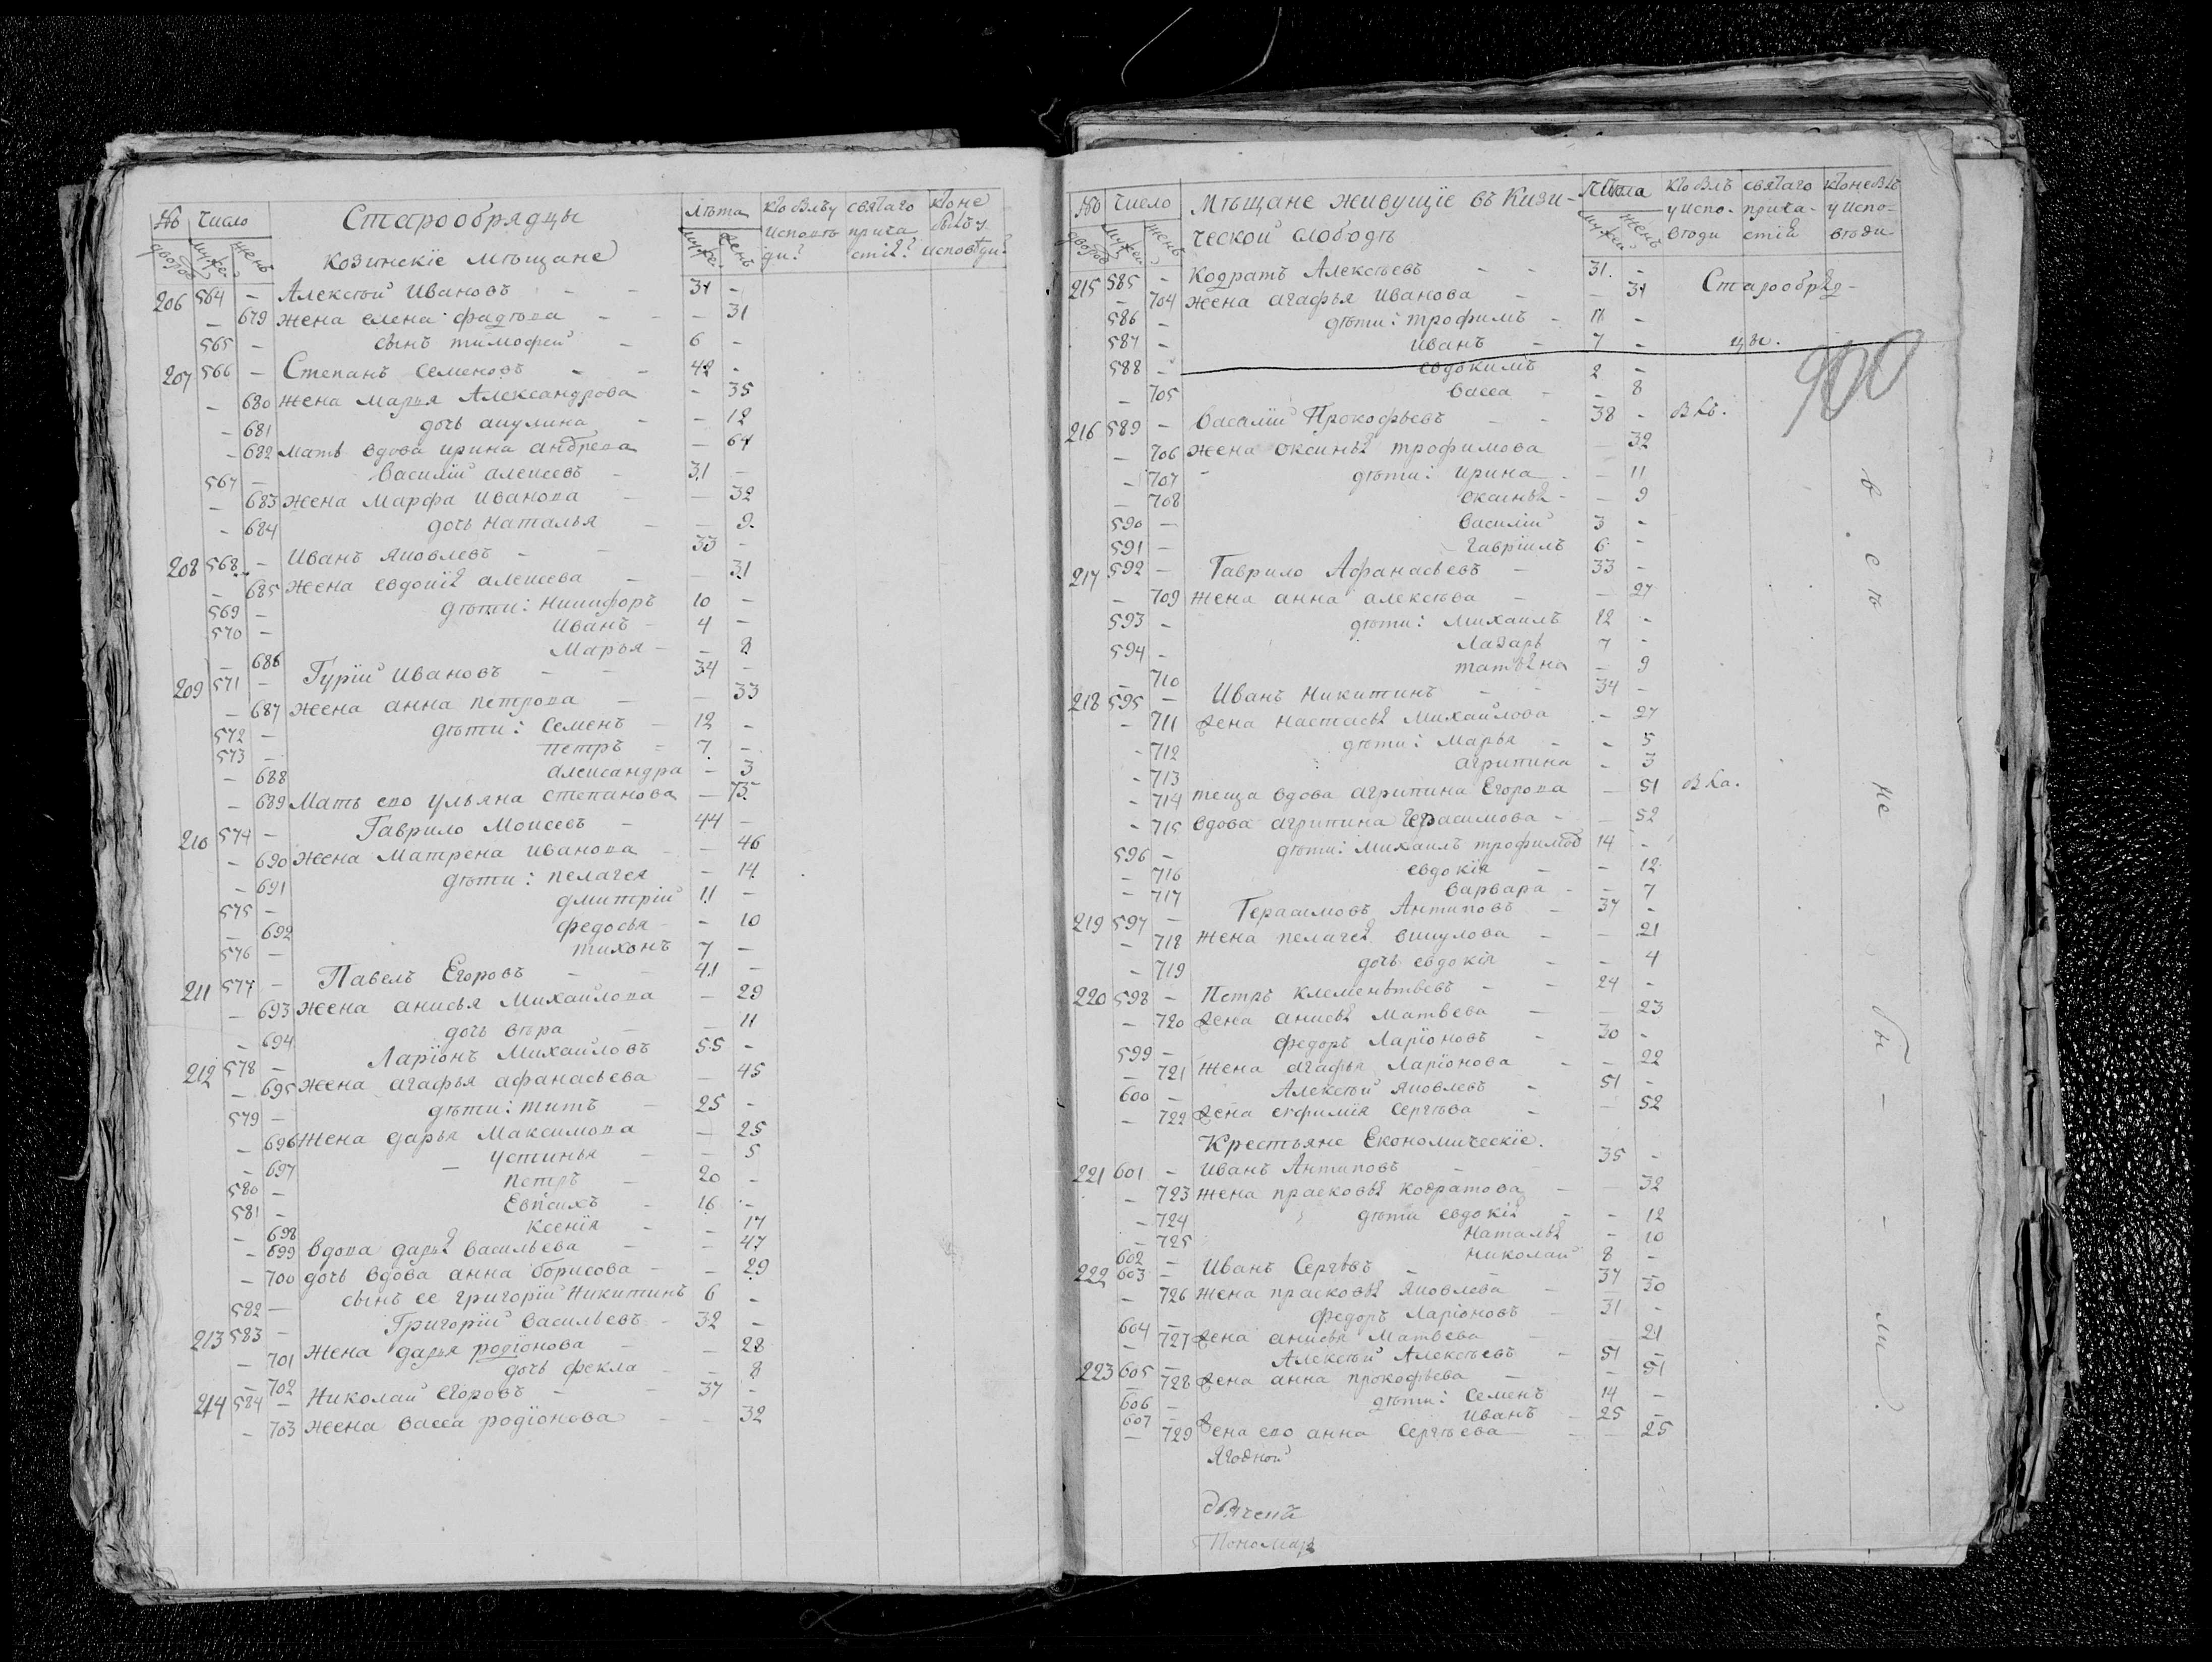 № Число Старообрядцы Лѣта кто былъ у святаго кто не
дворов мужс. женъ козинскіе мѣщане мужс. женъ исповѣди? прича стіе? былъ у исповѣди?
206 564 - Алексѣй Ивановъ - - 31 -
- 679 жена елена фадѣва - - - 31
565 - сынъ тимофей - 6 -
207 566 - Степанъ Семеновъ - - 42 -
- 680 жена Марья Александрова - 35
- 681 дочь акулина - - 12
- 682 Мать вдова ирина андрева - 64
567 - Василій алексеевъ - 31 -
- 683 жена Марфа Иванова - - 32
- 684 дочь Наталья - - 9.
208 568 - Иванъ Яковлевъ - - 33 -
- 685 жена евдокія алексеева - - 31
569 - дѣти: Никифоръ 10 -
570 - Иванъ - 4 -
- 686 Марья - - 8
209 571 - Гурій Ивановъ - - 34 -
- 687 жена анна петрова - - 33
572 - дѣти: Семенъ - 12 -
573 - петръ - 7 -
- 688 александра - 3
- 689 Мать ево ульяна Степанова - 73.
210 574 - Гаврило Моисеевъ - 44 -
- 690 жена Матрена иванова - - 46
- 691 дѣти: пелагея - 14
575 - дмитрій 11 -
- 692 федосья - - 10
576 - тихонъ 7 -
211 577 - Павелъ Егоровъ - - 41 -
- 693 жена анисья Михаилова - 29
- 694 дочь вѣра - - 11
212 578 - Ларіонъ Михаиловъ 55 -
- 695 жена агафья афанасьева - 45
579 - дѣти: титъ - 25 -
- 696 жена дарья Максимова - 25
- 697 - устинья - - 5
580 - петръ - 20 -
581 - Евпсихъ - 16 -
- 698 ксенія - - 17
- 699 вдова дарья васильева - - 47
- 700 дочь вдова анна борисова - - 29
582 - сынъ ее григорій Никитинъ 6 -
213 583 - Григорій Васильевъ - 32 -
- 701 жена дарья родіонова - - 28
- 702 дочь фекла - - 8
214 584 - Николай Егоровъ - - 37 -
- 703 жена васса родіонова - - 32
№ Число Мѣщане живущіе въ Кизи- Лѣта кто былъ святаго кто не былъ
дворов мужс. женъ ческой слободѣ мужс. женъ у испо- вѣди прича- стія у испо- вѣди
215 585 - Кодратъ Алексѣевъ - - 31. - Старообряд-
- 704 жена агафья Иванова - - 31
586 - дѣти: трофимъ - 11 -
587 - иванъ - 7 - цы.
588 - евдокимъ 2 -
- 705 васса - - 8
900
216 589 - Василій Прокофьевъ - - 38 - былъ.
- 706 жена оксинья трофимова - 32
- 707 дѣти: ирина - - 11
- 708 оксинья - - 9
590 - василій 3 -
591 - гавріилъ 6 -
217 592 - Гаврило Афанасьевъ - 33 -
- 709 жена анна алексѣва - - 27
593 - дѣти: михаилъ 12 -
594 - Лазарь 7 -
- 710 татьяна - 9
218 595 - Иванъ Никитинъ - - 34 -
- 711 жена настасья Михаилова - 27
- 712 дѣти: Марья - - 5
- 713 агрипина - 3
- 714 теща вдова агрипина Егорова - 51 была.
- 715 вдова агрипина герасимова - - 52
596 - дѣти: Михаилъ трофимов 14 -
- 716 евдокія - - 12
- 717 варвара - - 7
219 597 - Герасимовъ Антиповъ - 37 -
- 718 жена пелагея викулова - - 21
- 719 дочь евдокія - - 4
220 598 - Петръ клеменѣтьевъ - - 24 -
- 720 жена анисья Матвева - - 23
599 - федоръ Ларіоновъ - 30 -
- 721 жена агафья Ларіонова - - 22
600 - Алексѣй Яковлевъ - 51 -
- 722 жена ефимія Сергѣва - - 52
Крестьяне Економическіе.
221 601 - Иванъ Антиповъ - 35 -
- 723 жена прасковья кодратова - - 32
- 724 дѣти евдокія - - 12
- 725 Наталья - 10
602 - николай 8 -
222 603 - Иванъ Сергѣвъ - - 37 -
- 726 жена прасковья Яковлева - - 30
604 - федоръ Ларіоновъ - 31 -
- 727 жена анисья Матвева - - 21
223 605 - Алексѣй Алексѣевъ - 51 -
- 728 жена анна прокофьева - - 51
606 - дѣти: Семенъ 14 -
607 - Иванъ - 25 -
- 729 жена ево анна Сергѣева - - 25
Ягодной
дьячекъ
Пономарь
в с ѣ не бы - ли.